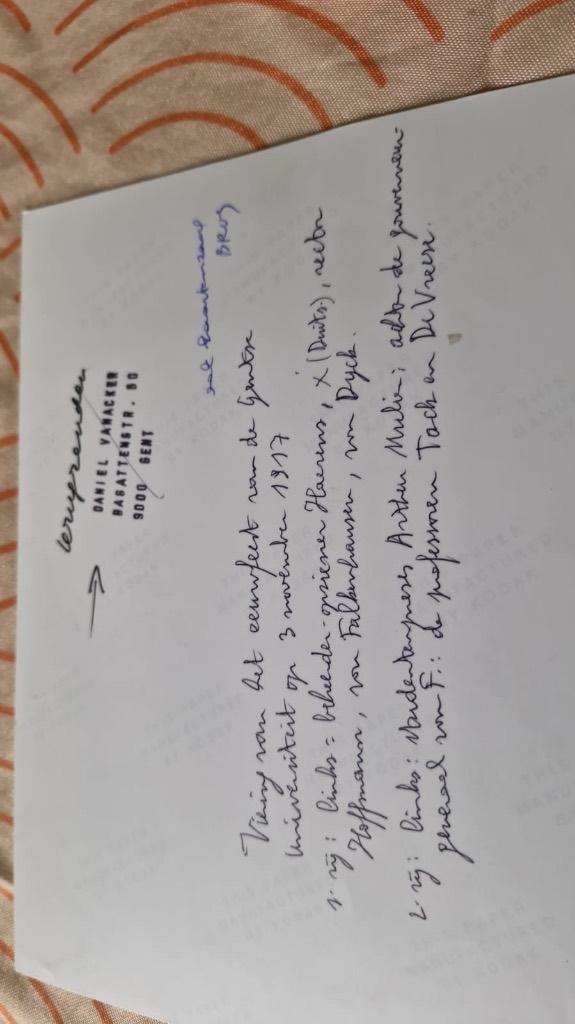 → terugzenden
DANIEL VANACKER
BAGATTENSTR. 80
9000 GENT
BRUG
Viering van het eeuwfeest van de Gentse
Universiteit op 3 november 1917
1e rij: links: beheerder-opziener Haerens, X (Duits.), rector
Hoffmann, von Falkenhausen, von Dyck.
2e rij: links: studentenpreses Arthur Mulier; achter de gouverneur-
generaal von F.: de professoren Tack en De Vreese.
THIS PAPER
MANUFACTURED
BY KODAK